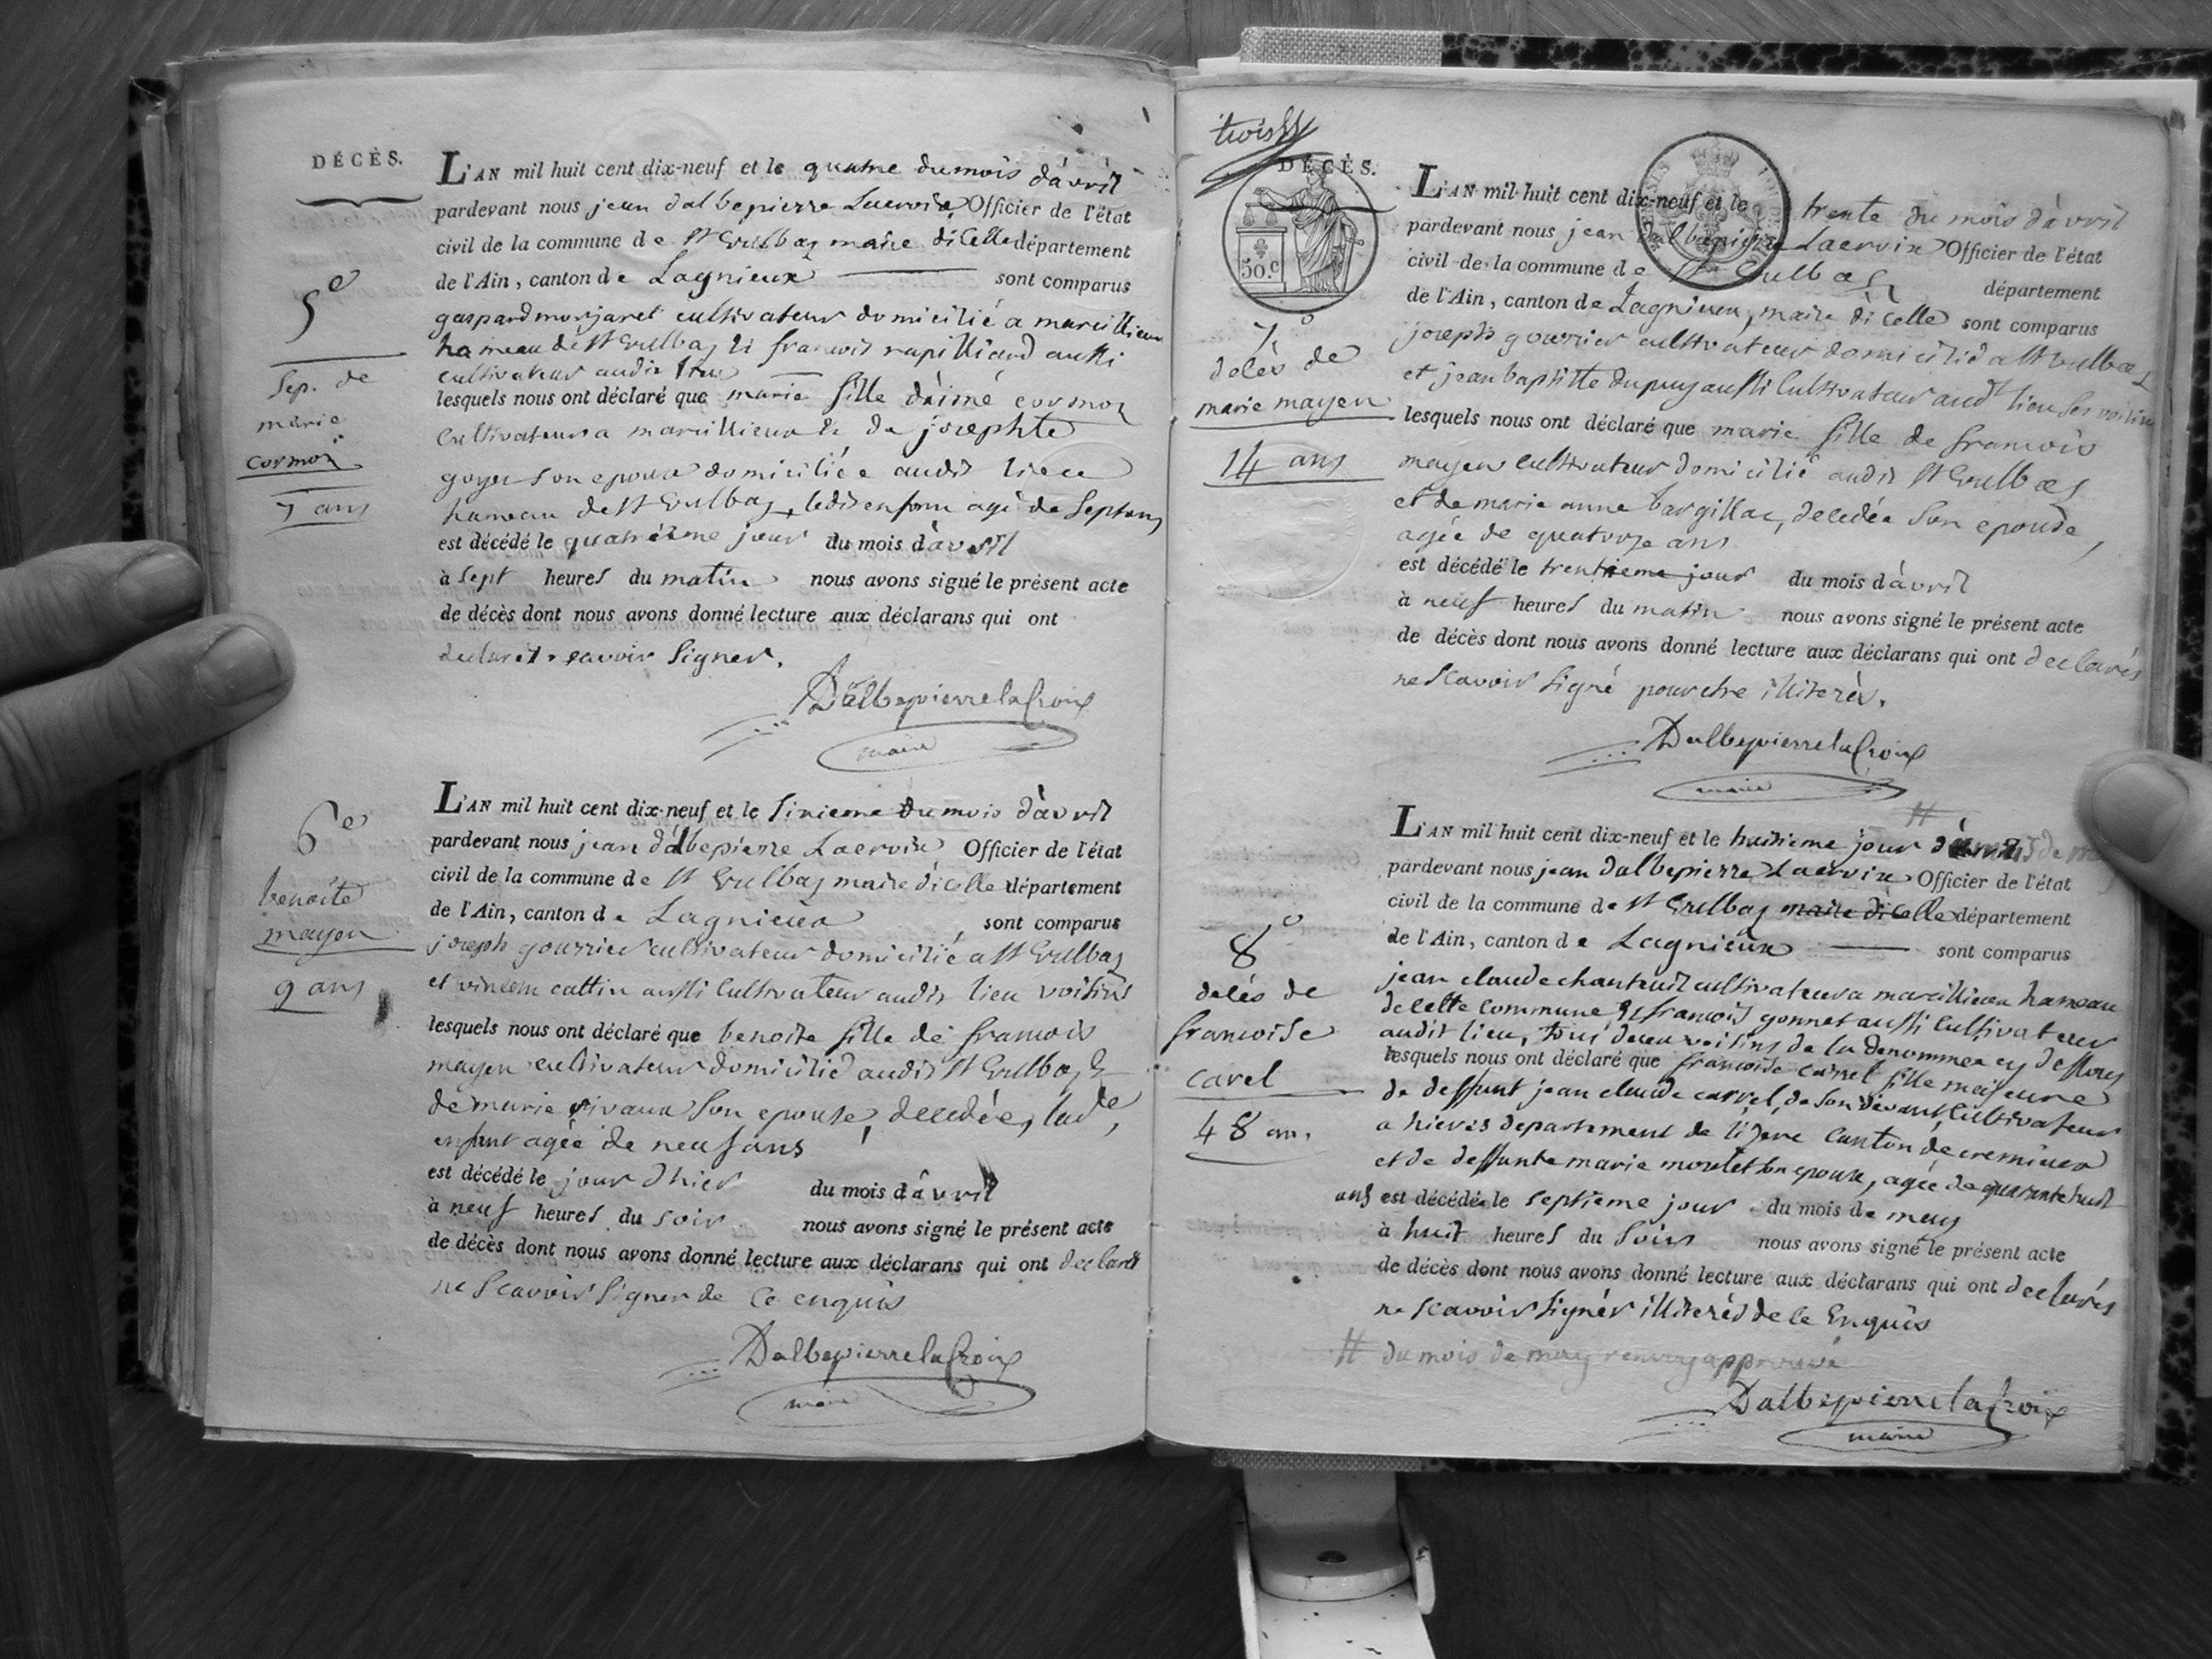 DÉCÈS.
L'AN mil huit cent dix-neuf et le quatre du mois d'avril
pardevant nous jean dalbepierre Lacroix Officier de l'état
civil de la commune de St Vulbas maire dicelle département
de l'Ain, canton de Lagnieux sont comparus
gaspard monjaret cultivateur domicilié a marcillieux
hameau de St Vulbas & francois rapilliard aussi
cultivateur audit lieu
lesquels nous ont déclaré que marie fille d'aimé cormoz
cultivateur a marcillieux & de josephte
goyet son epouse domiciliée audit lieu
hameau de St Vulbas, ledit enfant agé de sept ans
est décédé le quatrième jour du mois d'avril
à sept heures du matin nous avons signé le présent acte
de décès dont nous avons donné lecture aux déclarans qui ont
savoir signer.
Dalbepierrelacroix
maire
5e
Sep. de
marie
cormoz
7 ans
L'AN mil huit cent dix-neuf et le sixieme du mois d'avril
pardevant nous jean dalbepierre Lacroix Officier de l'état
civil de la commune de St Vulbas maire dicelle département
de l'Ain, canton de Lagnieux, sont comparus
joseph gourrier cultivateur domicilié a St Vulbas
et vincent cattin aussi cultivateur audit lieu voisins
lesquels nous ont déclaré que benoite fille de francois
mayen cultivateur domicilié audit St Vulbas &
de marie rivaux son epouse, decedée, ladte
enfant agée de neuf ans
est décédé le jour d'hier du mois d'avril
à neuf heures du soir nous avons signé le présent acte
de décès dont nous avons donné lecture aux déclarans qui ont declarés
ne scavoir signer de ce enquis
Dalbepierrelacroix
maire
6e
benoite
mayen
9 ans
trois
DÉCÈS.
50.c
L'AN mil huit cent dix-neuf et le trente du mois d'avril
pardevant nous jean dalbepierre Lacroix Officier de l'état
civil de la commune de St Vulbas département
de l'Ain, canton de Lagnieux, maire dicelle sont comparus
joseph gourrier cultivateur domicilié a St Vulbas
et jean baptitte dupuy aussi cultivateur audt lieu ses voisins
lesquels nous ont déclaré que marie fille de francois
mayen cultivateur domicilié audit St Vulbas
et de marie anne bargillac, decedée son epouse,
agée de quatorze ans
est décédé le trentieme jour du mois d'avril
à neuf heures du matin nous avons signé le présent acte
de décès dont nous avons donné lecture aux déclarans qui ont declarés
ne scavoir signé pour etre illiterès.
Dalbepierrelacroix
maire
7e
delès de
marie mayen
14 ans
L'AN mil huit cent dix-neuf et le huitieme jour
pardevant nous jean dalbepierre Lacroix Officier de l'état
civil de la commune de St Vulbas maire dicelle département
de l'Ain, canton de Lagnieux sont comparus
jean claude chanteuil cultivateur a marcillieux hameau
de cette commune & francois gonnet aussi cultivateur
audit lieu, tous deux voisins de la denommee cy dessous
lesquels nous ont déclaré que francoise carrel fille majeure
de deffunt jean claude carrel, de son vivant cultivateur
a hieres departement de l'izere canton de cremieux
et de deffunte marie moulet son epouse, agée de quarante huit
ans est décédée le septieme jour du mois de may
à huit heures du soir nous avons signé le présent acte
de décès dont nous avons donné lecture aux déclarans qui ont declarés
ne scavoir signér illiterés de ce Enquis
# du mois de may renvoy approuvé
Dalbepierrelacroix
maire
8e
delés de
francoise
carel
48 ans